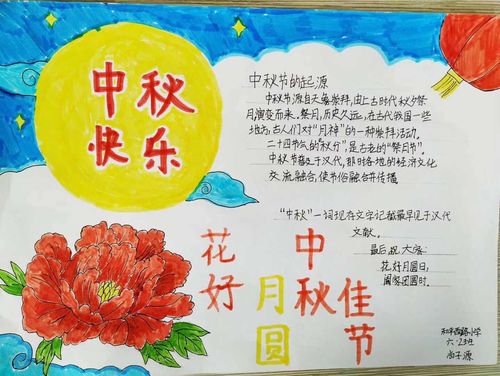 中秋
快乐
中秋节的起源
中秋节源自天象崇拜,由上古时代秋夕祭
月演变而来。祭月,历史久远,在古代我国一些
地方古人们对“月神”的一种崇拜活动。
二十四节气的“秋分”,是古老的“祭月节”。
中秋节普及于汉代,那时各地的经济文化
交流融合,使节俗融合并传播
“中秋”一词现存文字记载最早见于汉代
文献。
最后祝大家:
花好月圆日,
阖家团圆时。
花好
月圆
中秋
佳节
六·23班
尚子源